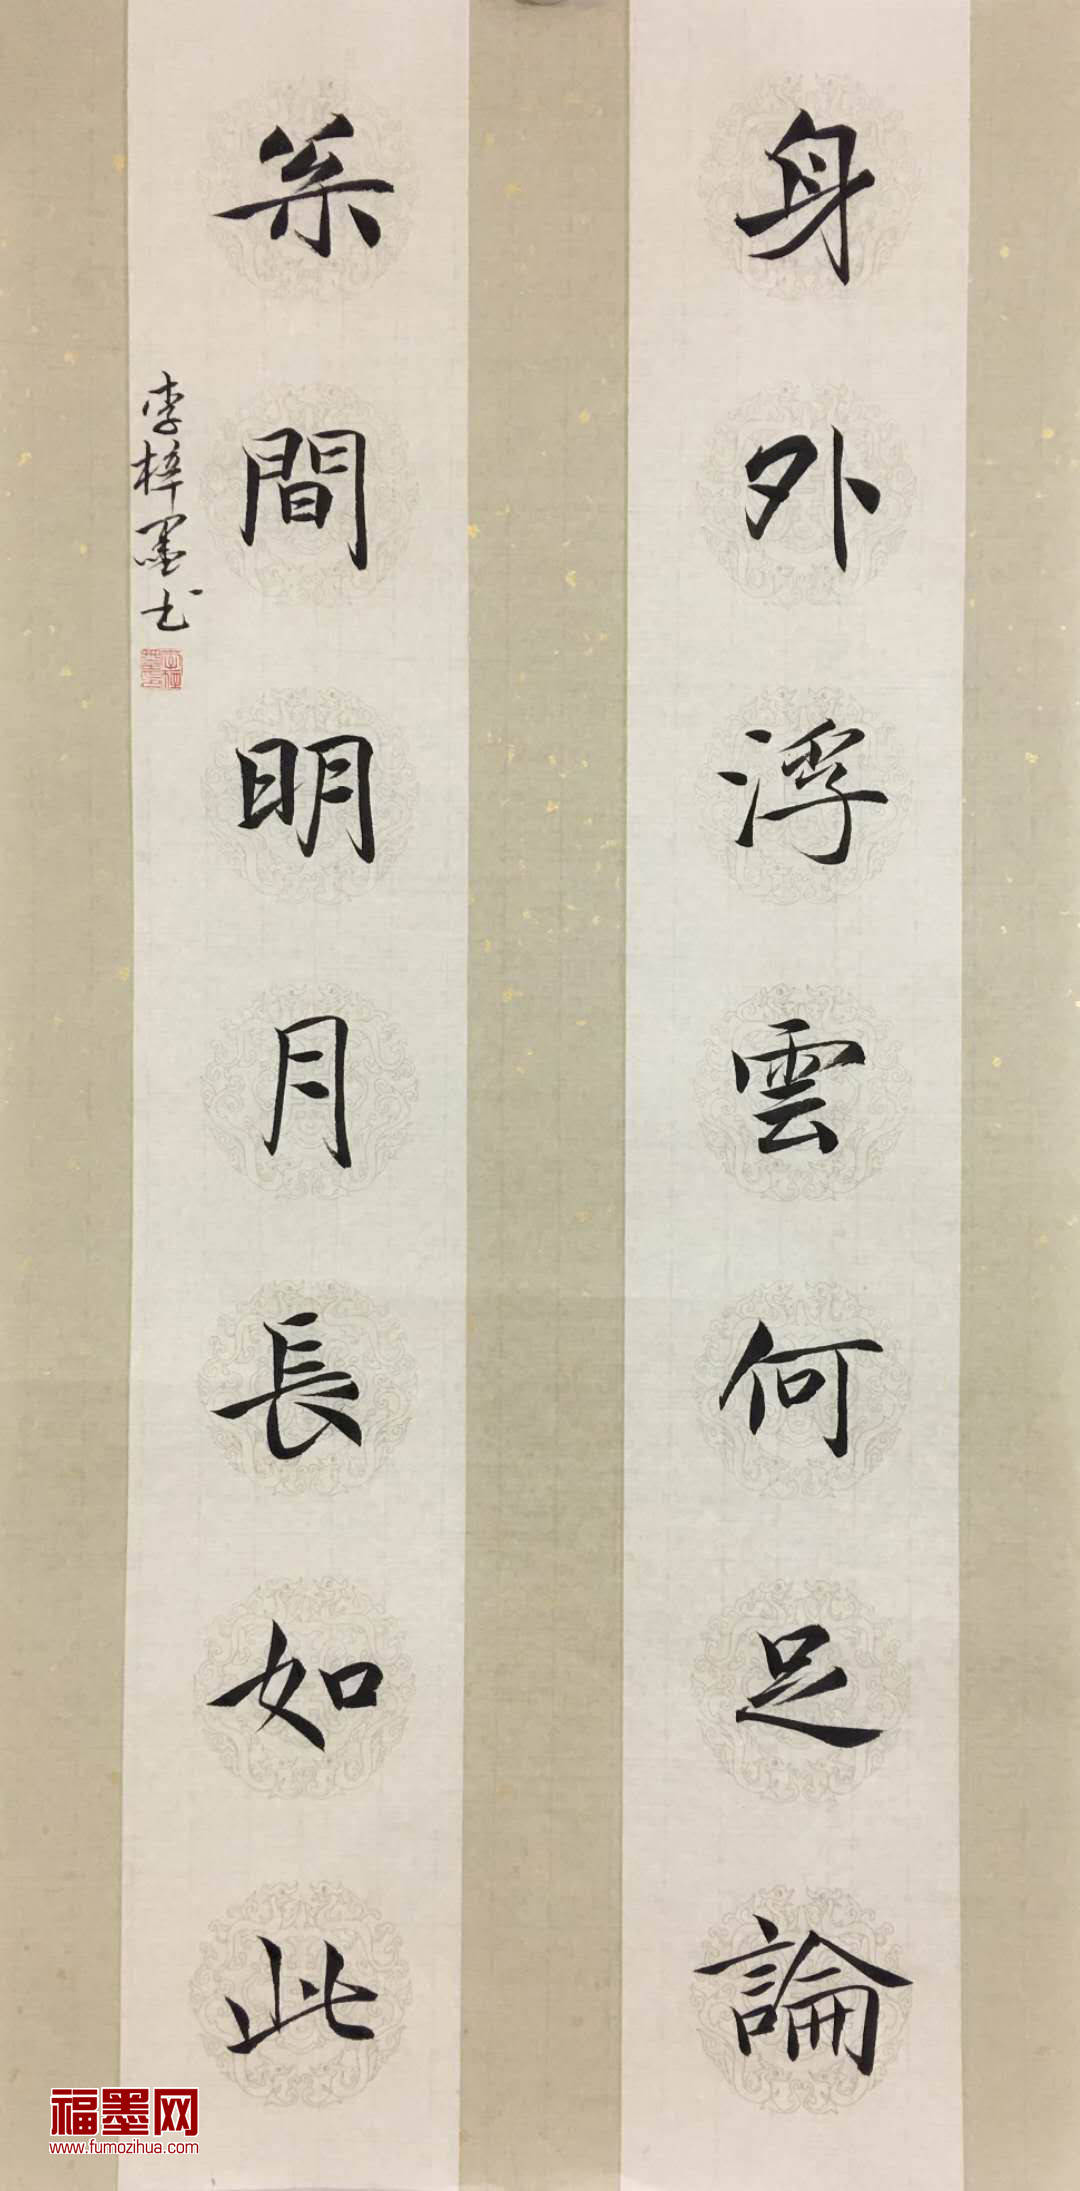 身外浮雲何足論
枀間明月長如此
李梓墨书
福墨网
www.fumozihua.com